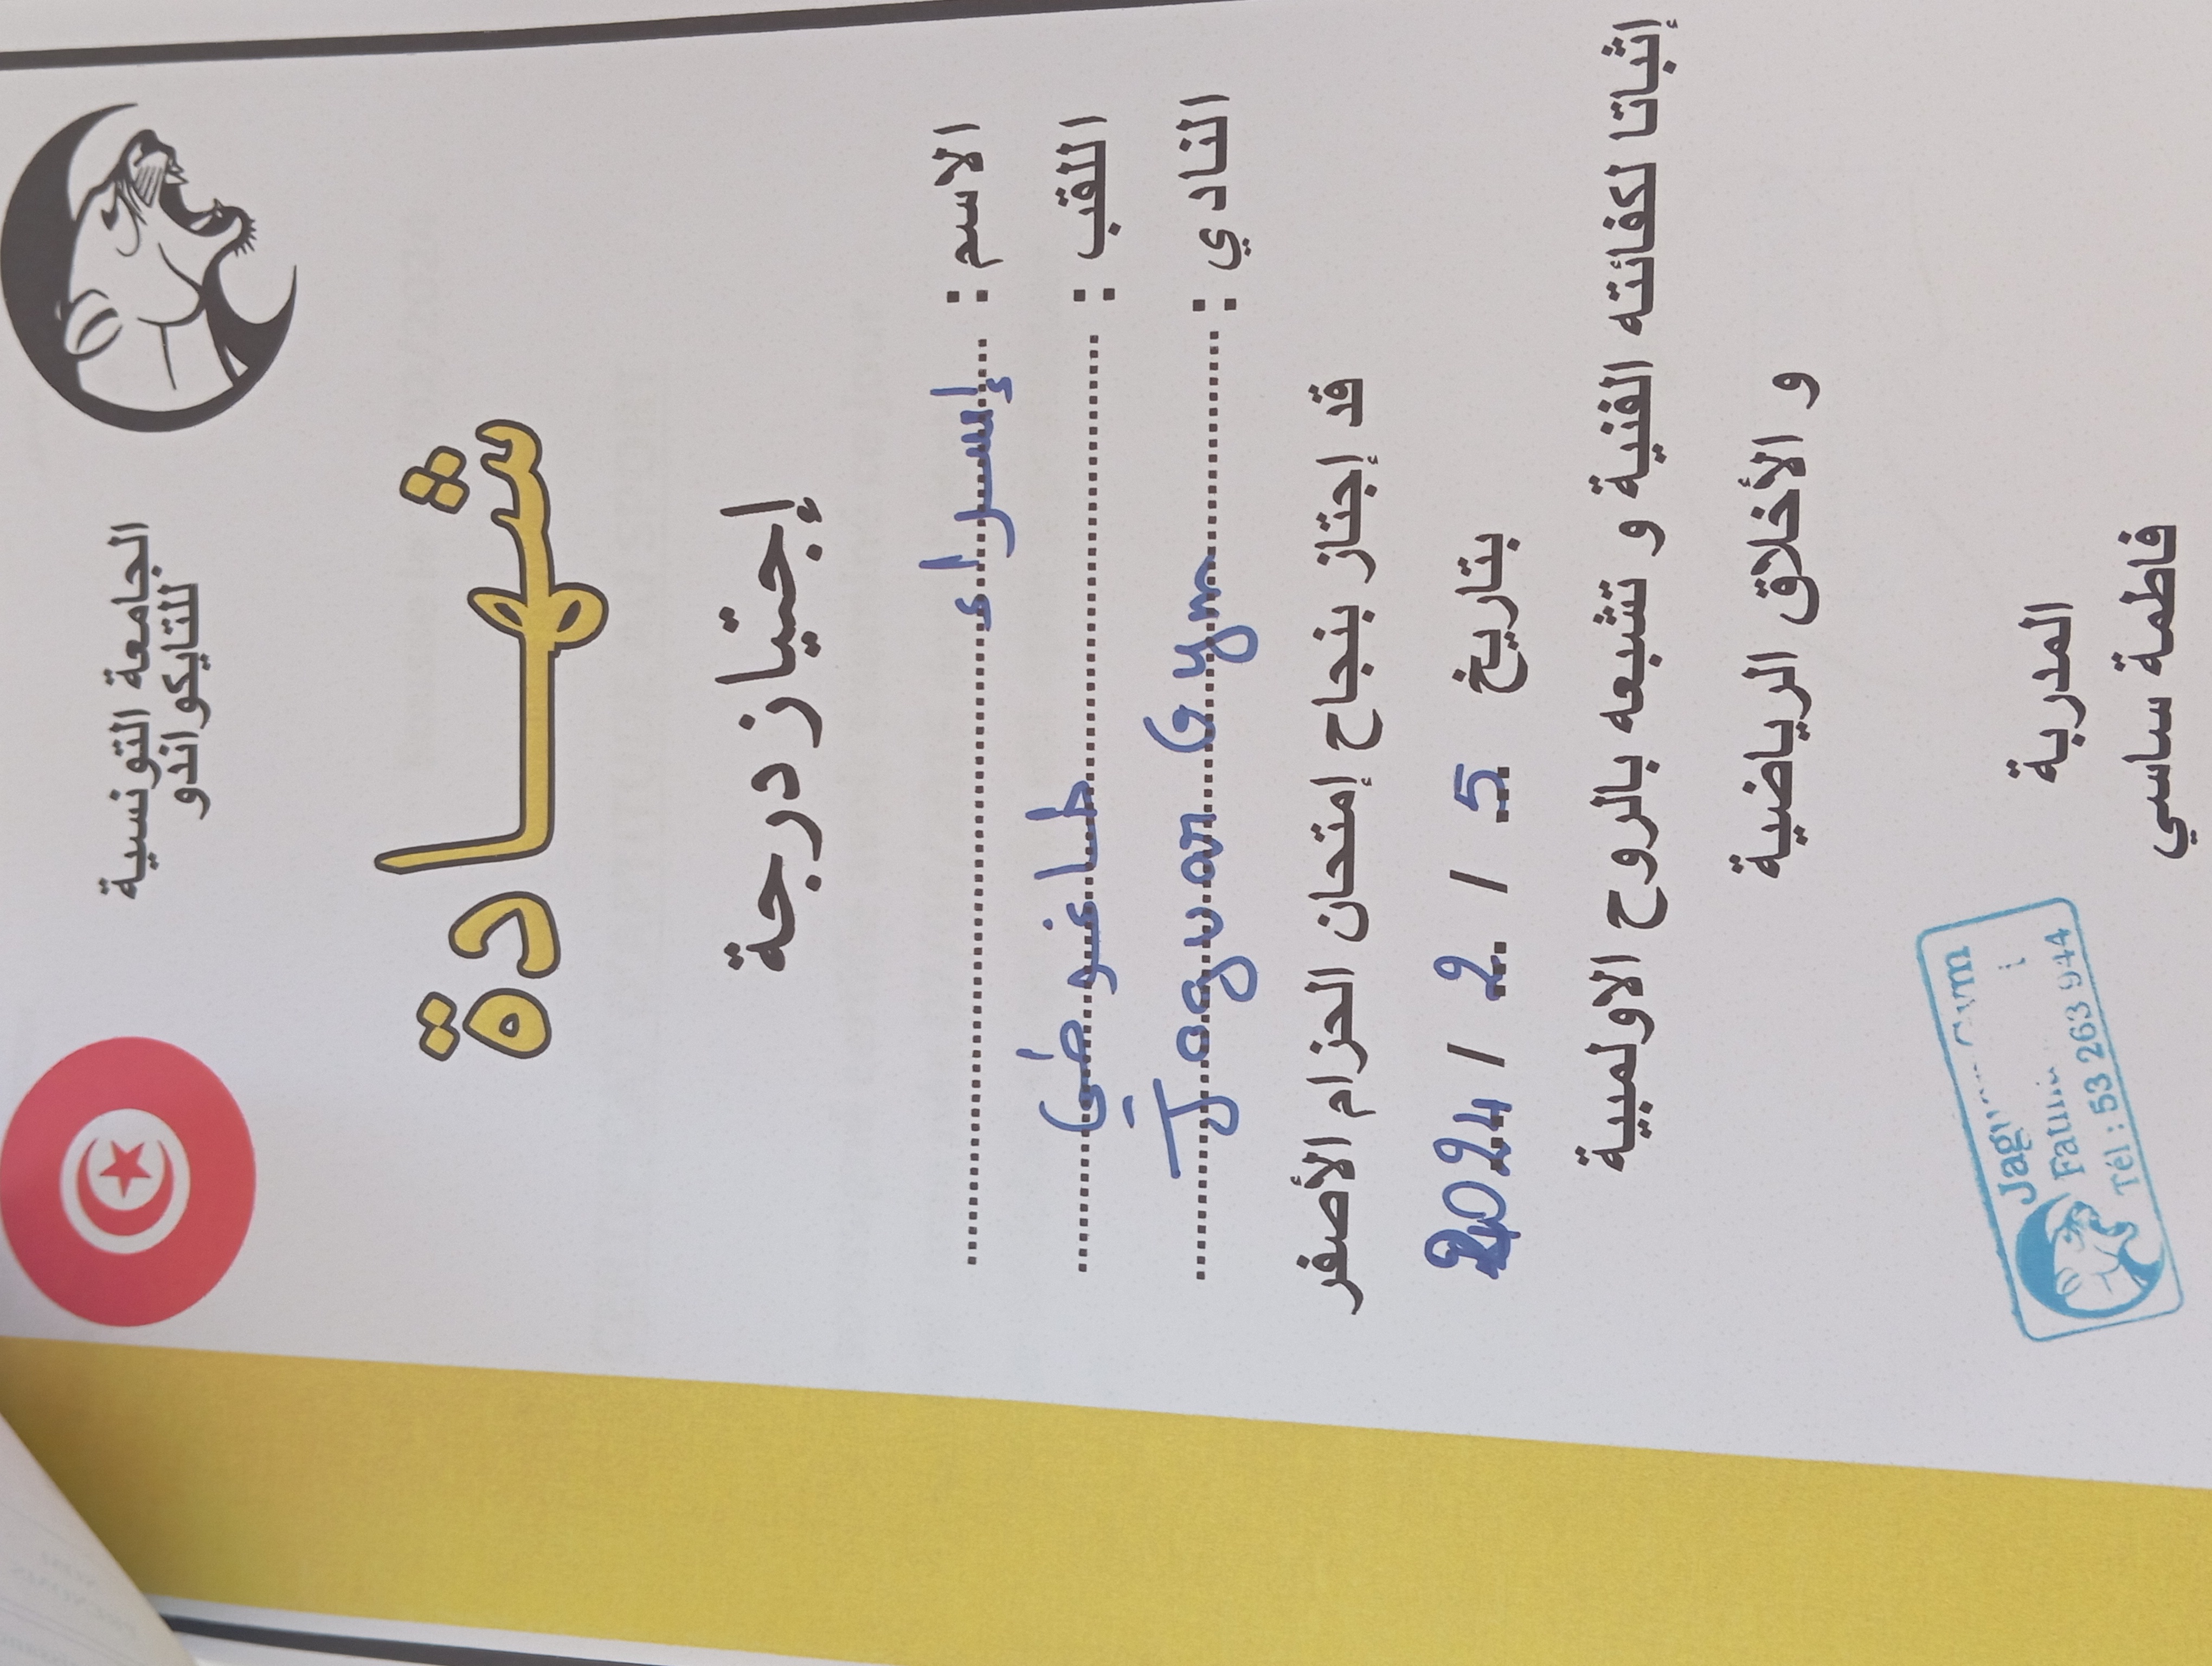 الجامعة التونسية
للتايكواندو
شهادة
إجتياز درجة
الاسم : إسراء
اللقب : طاغوطي
النادي : Jaguar Gym
قد إجتاز بنجاح إمتحان الحزام الأصفر
بتاريخ 5 / 2 / 2024
إثباتا لكفائته الفنية و تشبعه بالروح الاولمبية
و الأخلاق الرياضية
المدربة
فاطمة ساسي
Tél : 53 263 944